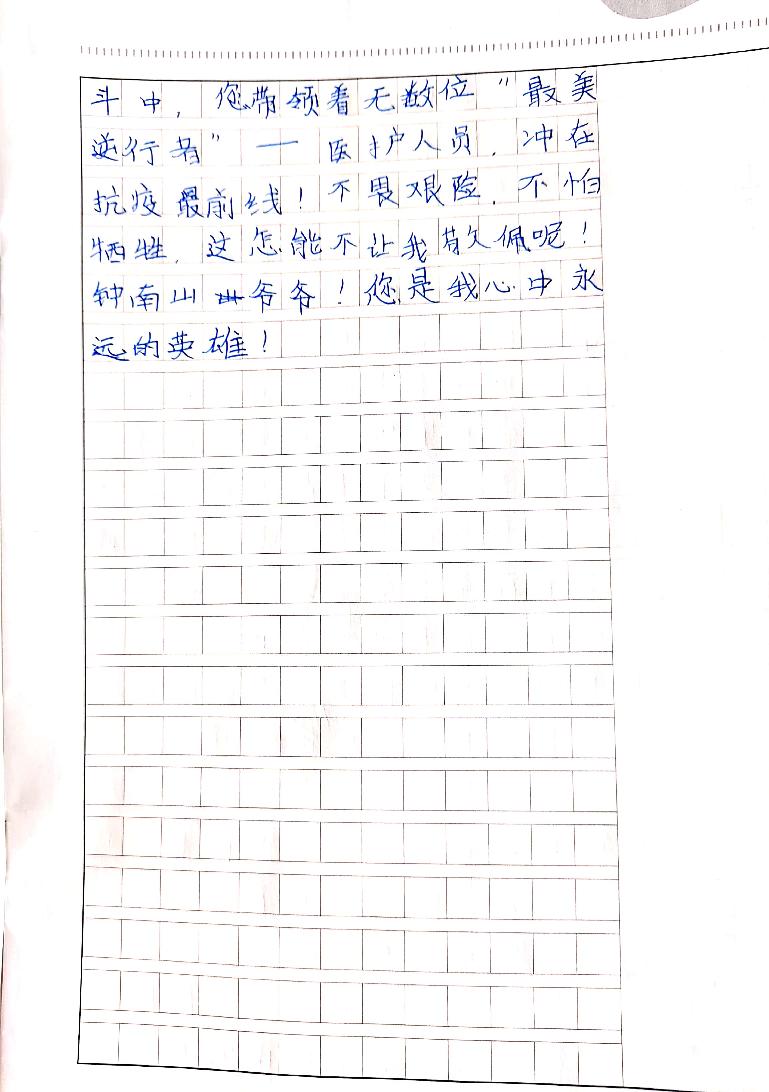 斗中，您带领着无数位“最美
逆行者”—医护人员，冲在
抗疫最前线！不畏艰险，不怕
牺牲，这怎能不让我敬佩呢！
钟南山爷爷！您是我心中永
远的英雄！